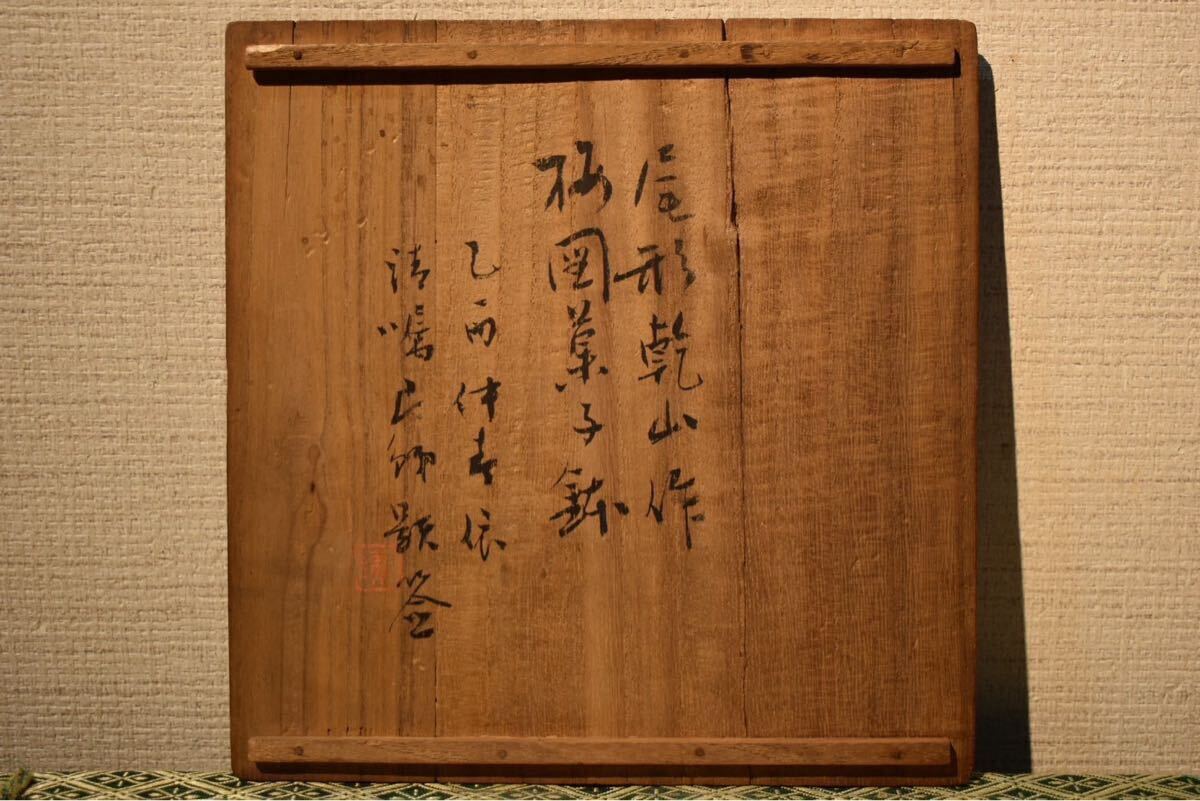 尾形乾山作
梅図菓子鉢
乙酉仲春依
清嘱正師題簽